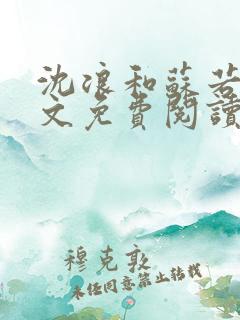 沈浪和蘇若
文免費閱讀
穆克敦
未经同意禁止转载